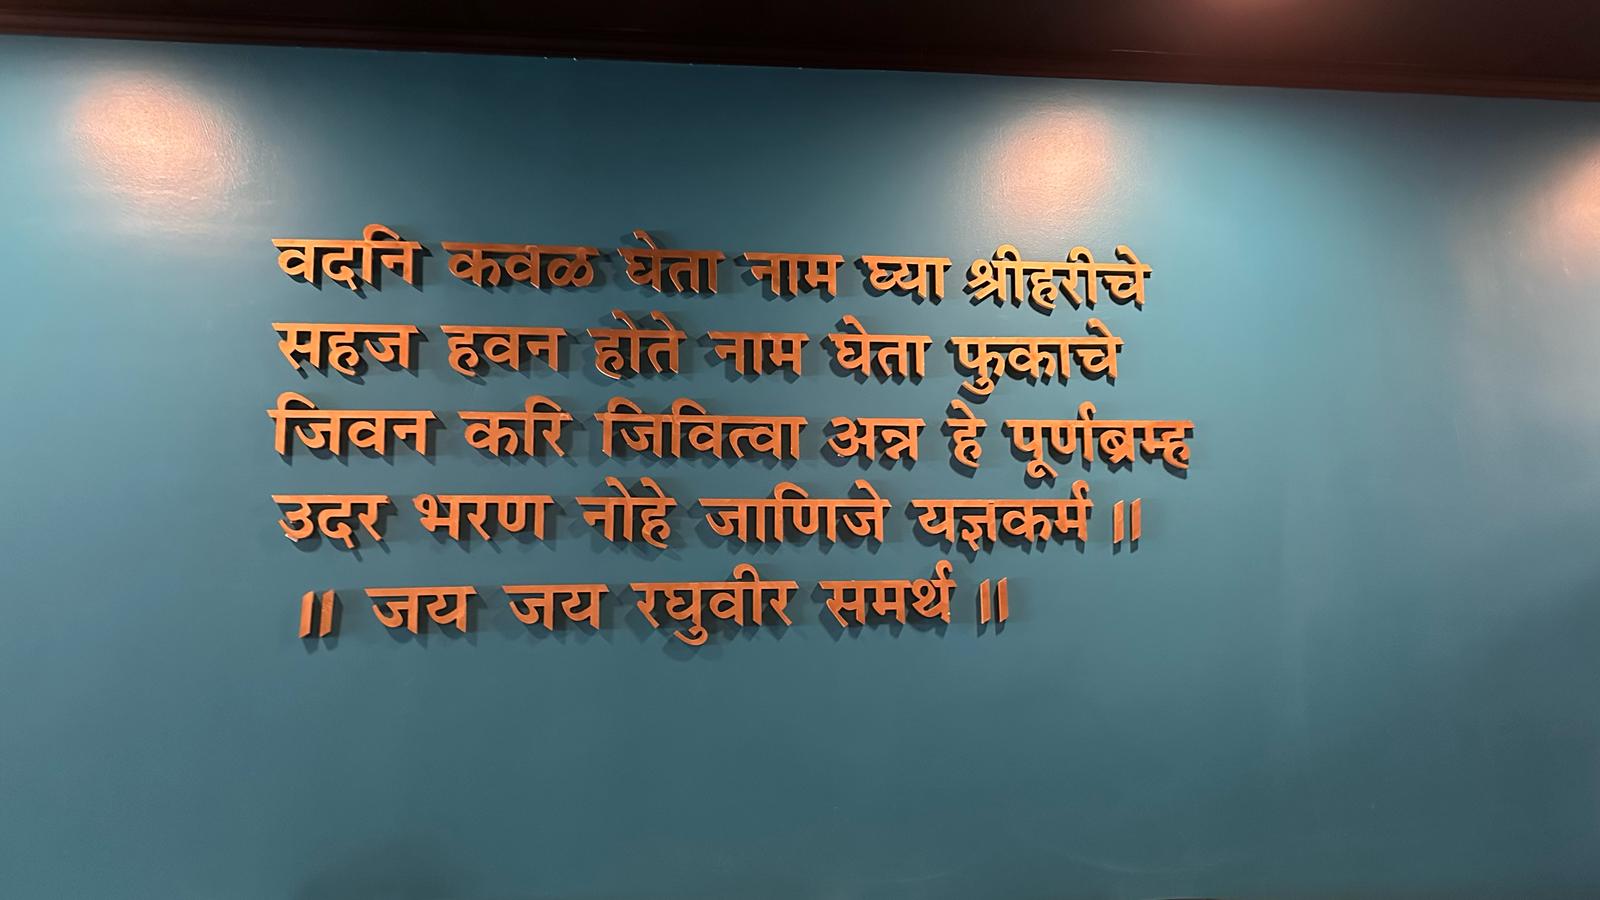 वदनि कवळ घेता नाम घ्या श्रीहरीचे
सहज हवन होते नाम घेता फुकाचे
जिवन करि जिवित्वा अन्न हे पूर्णब्रम्ह
उदर भरण नोहे जाणिजे यज्ञकर्म ॥
॥ जय जय रघुवीर समर्थ ॥